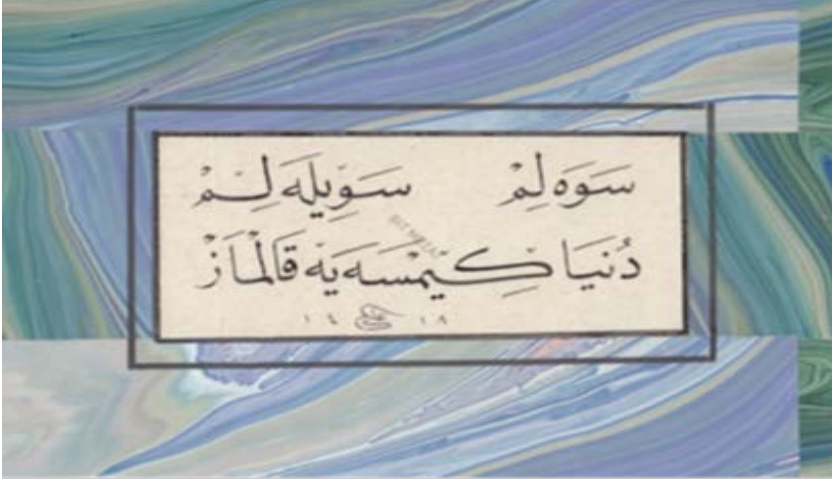 سَوَه لِمْ سَوِيلَه لِمْ
دُنيَا كِيمْسَه يَه قَالْمَازْ